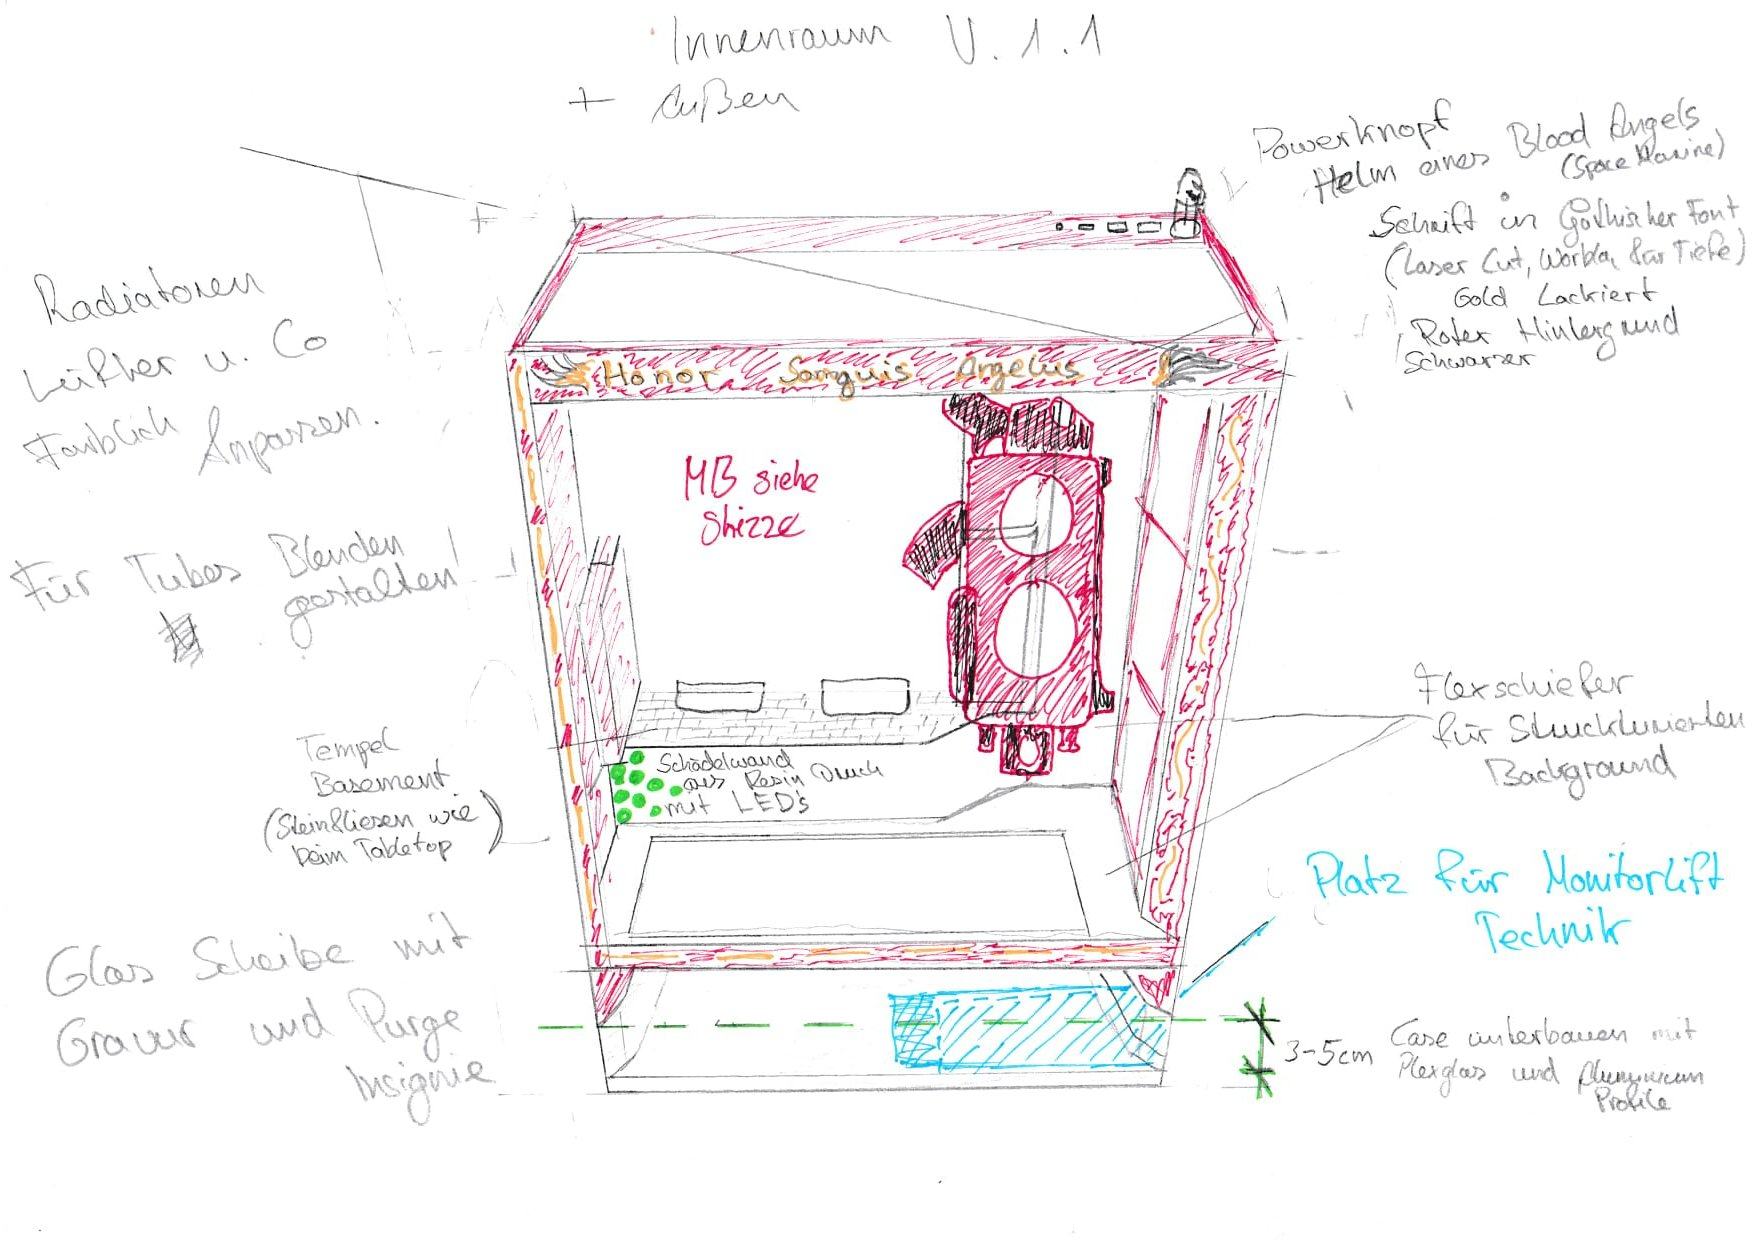 Innenraum V. 1.1
+ Außen
Powerknopf
Helm eines Blood Angels
(Space Marine)
Schrift in Gothischer Font
(Laser Cut, Worbla für Tiefe)
Gold Lackiert
Roter Hintergrund
Schwarzer
Radiatoren
Lüfter u. Co
Farblich Anpassen.
Für Tubes Blenden
gestalten!
Honor Sanguis Angelus
MB siehe
Skizze
Schädelwand
aus Resin Druck
mit LED's
Tempel
Basement
(Steinfliesen wie
beim Tabletop)
Flexschiefer
für Struckturierten
Background
Platz für Monitorlift
Technik
Glas Scheibe mit
Gravur und Purge
Insignie
3-5cm
Case unterbauen mit
Plexglas und Aluminium
Profile